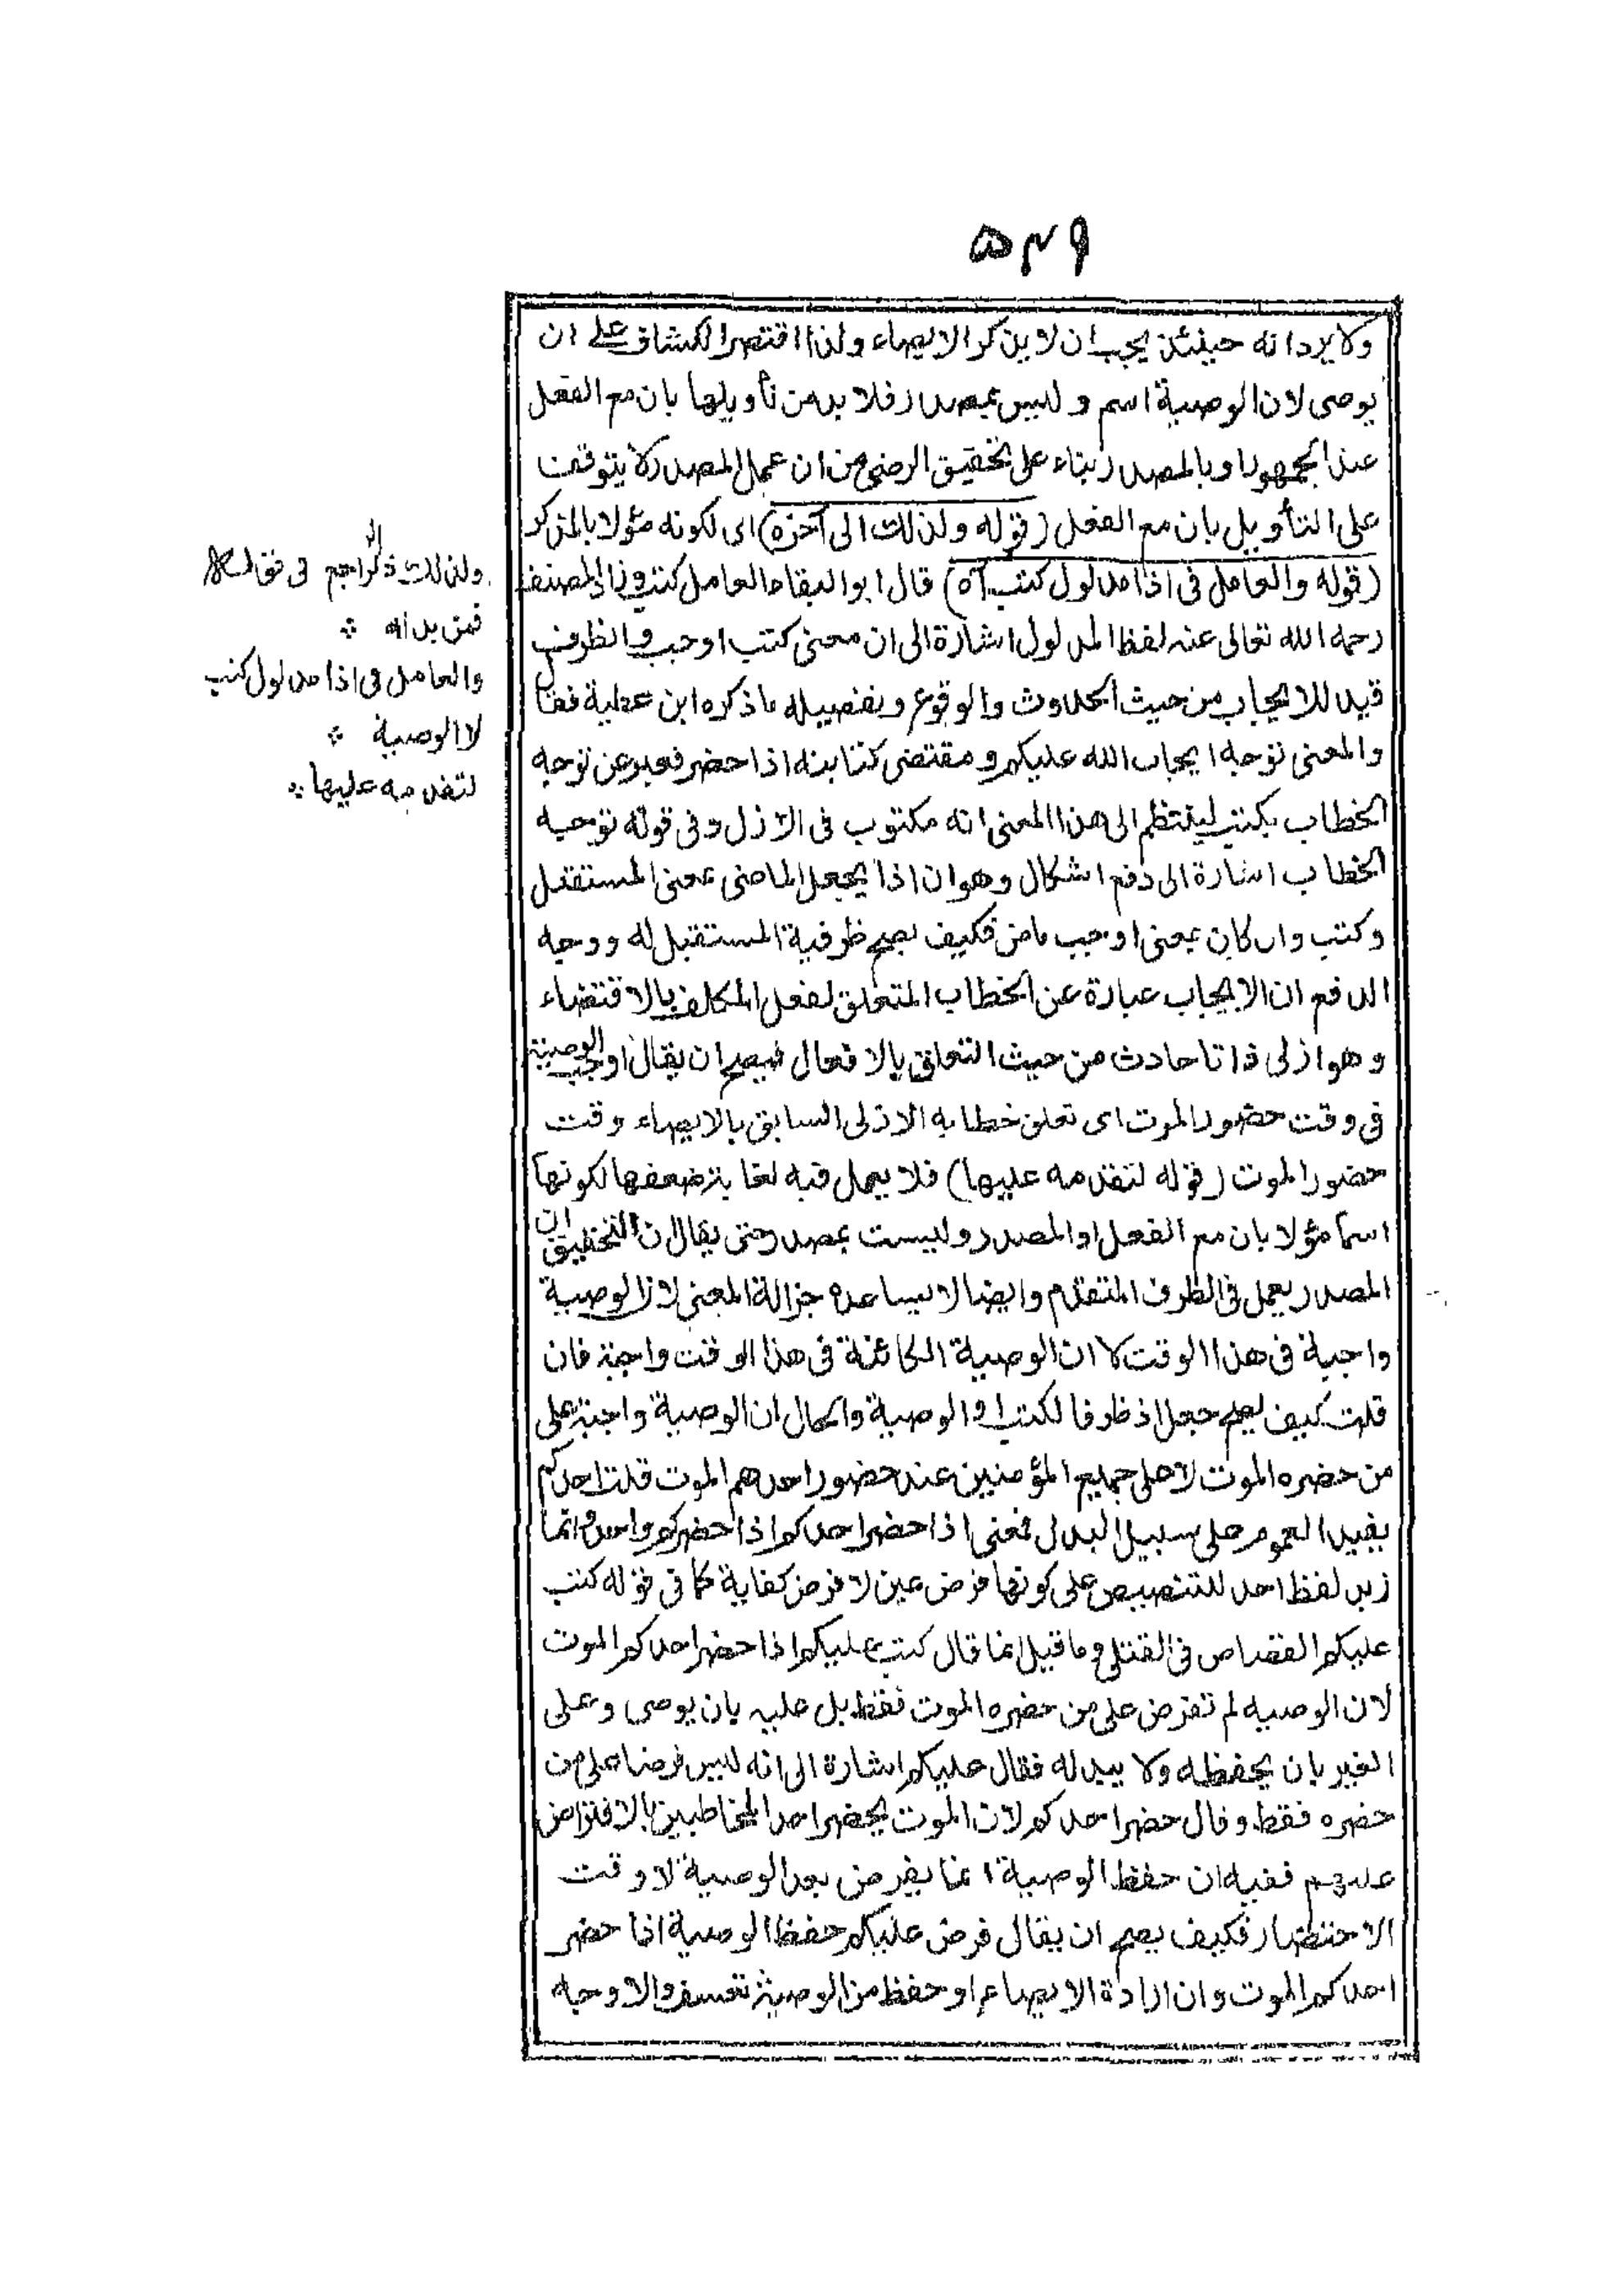 ۵۴۹
ولا يرد انه حينئذ يجب ان لا يذكر الايصاء ولذا اقتصر الكشاف على ان
يوصى لان الوصية اسم وليس بمصدر فلا بد من تأويلها بان مع الفعل
عند الجمهور او بالمصدر بناء على تحقيق الرضى من ان عمل المصدر لا يتوقف
على التأويل بان مع الفعل (قوله ولذلك الى آخره) اى لكونه مؤلا بالمذكر
(قوله والعامل فى اذا مدلول كتب آه) قال ابو البقاء العامل كتب وزاد المصنف
رحمه الله تعالى عنه لفظ المدلول اشارة الى ان معنى كتب اوجب والظرف
قيد للايجاب من حيث الحدوث والوقوع وتفصيله ما ذكره ابن عطية فقال
والمعنى توجه ايجاب الله عليكم ومقتضى كتابته اذا حضر فعبر عن توجه
الخطاب بكتب لينتظم الى هذا المعنى انه مكتوب فى الازل وفى قوله توجيه
الخطاب اشارة الى دفع اشكال وهو ان اذا يجعل الماضى بمعنى المستقبل
وكتب وان كان بمعنى اوجب ماض فكيف يصح ظرفية المستقبل له ووجه
الدفع ان الايجاب عبارة عن الخطاب المتعلق لفعل المكلف بالاقتضاء
وهو ازلى ذاتا حادث من حيث التعلق بالافعال فيصح ان يقال اوجب الوصية
فى وقت حضور الموت اى تعلق خطابه الازلى السابق بالايصاء وقت
حضور الموت (قوله لتقدمه عليها) فلا يعمل فيه لغاية ضعفها لكونها
اسما مؤلا بان مع الفعل او المصدر وليست بمصدر حتى يقال ان التحقيق ان
المصدر يعمل فى الظرف المتقدم وايضا لا يساعده جزالة المعنى لان الوصية
واجبة فى هذا الوقت لا ان الوصية الكائنة فى هذا الوقت واجبة فان
قلت كيف يصح جعل اذ ظرفا لكتب او الوصية والحال ان الوصية واجبة على
من حضره الموت لا على جميع المؤمنين عند حضور احدهم الموت قلت احدكم
يفيد العموم على سبيل البدل فمعنى اذا حضر احدكم اذا حضركم واحدا وانما
زيد لفظ احد للتنصيص على كونها فرض عين لا فرض كفاية كما فى قوله كتب
عليكم القصاص فى القتلى وما قيل انما قال كتب عليكم اذا حضر احدكم الموت
لان الوصيه لم تفرض على من حضره الموت فقط بل عليه بان يوصى وعلى
الغير بان يحفظه ولا يبدله فقال عليكم اشارة الى انه ليس فرضا على من
حضره فقط وقال حضر احدكم لان الموت يحضر احد المخاطبين بالافتراض
عليهم ففيه ان حفظ الوصية انما يفرض بعد الوصية لا وقت
الاحتضار فكيف يصح ان يقال فرض عليكم حفظ الوصية اذا حضر
احدكم الموت وان ارادة الايصاء او حفظ من الوصية تعسف والاوجه
ولذلك ذكر الراجع فى قوله
فمن بدله ؞
والعامل فى اذا مدلول كتب
لا الوصية ؞
لتقدمه عليها ؞